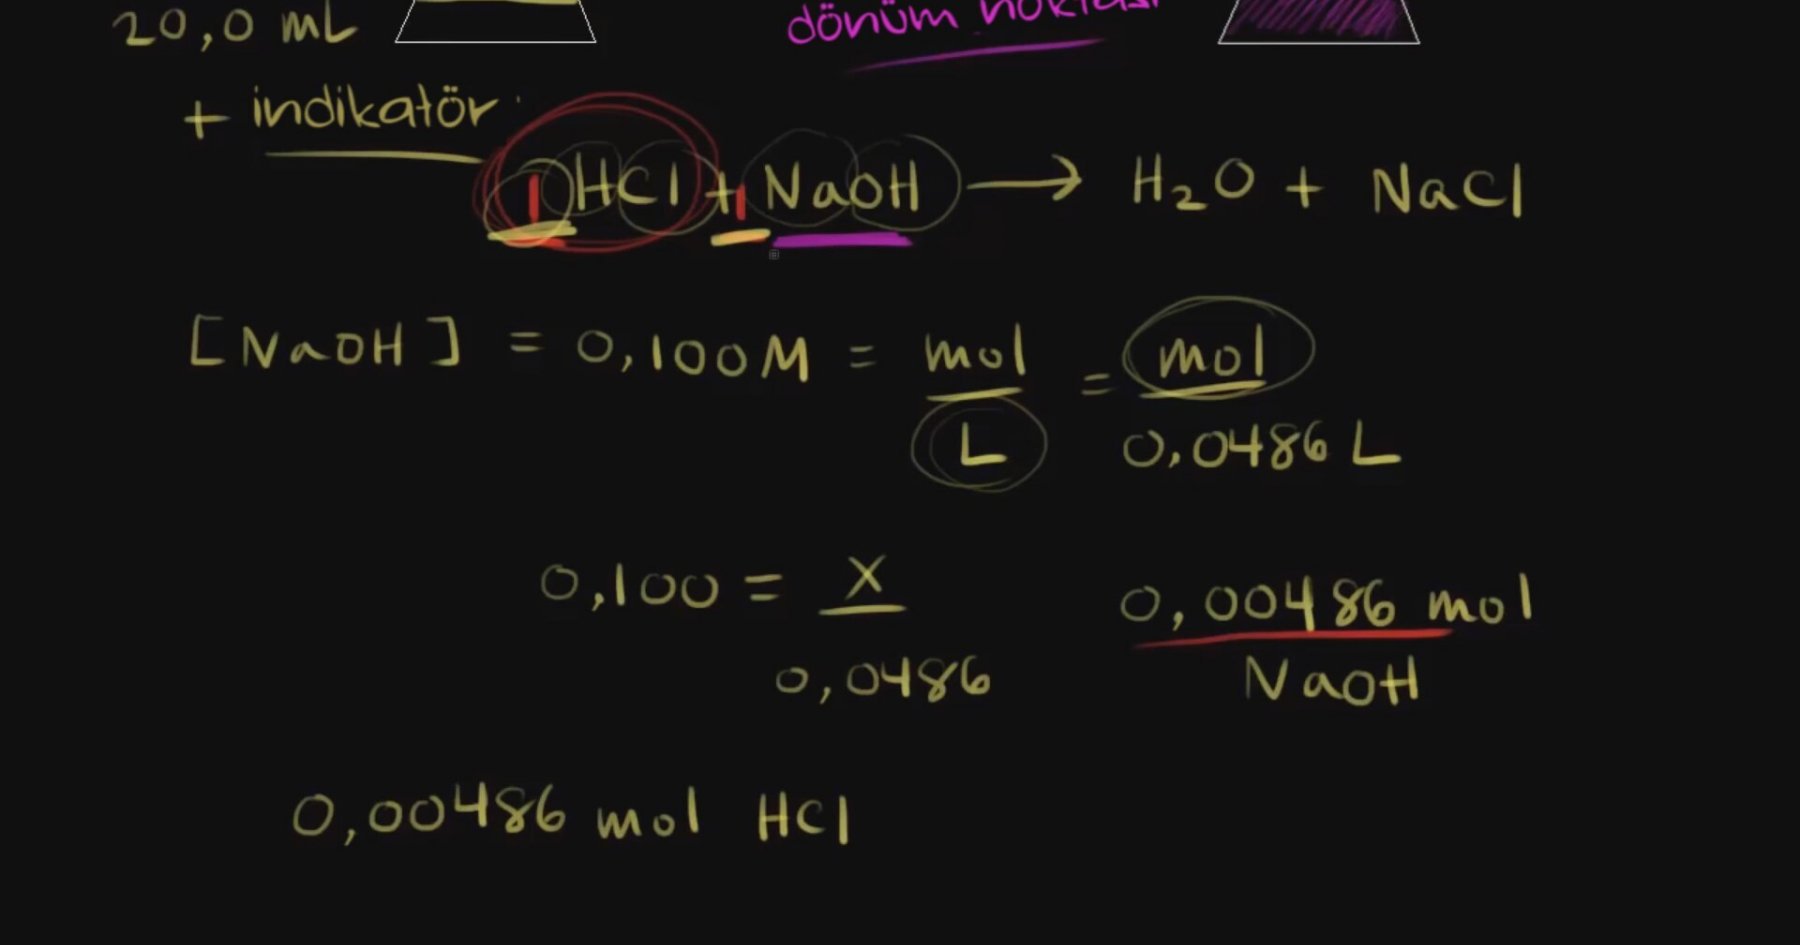 20,0 mL
dönüm noktası
+ indikatör
1 HCl + 1 NaOH → H₂O + NaCl
[NaOH] = 0,100M = mol / L = mol / 0,0486 L
0,100 = X / 0,0486
0,00486 mol
NaOH
0,00486 mol HCl